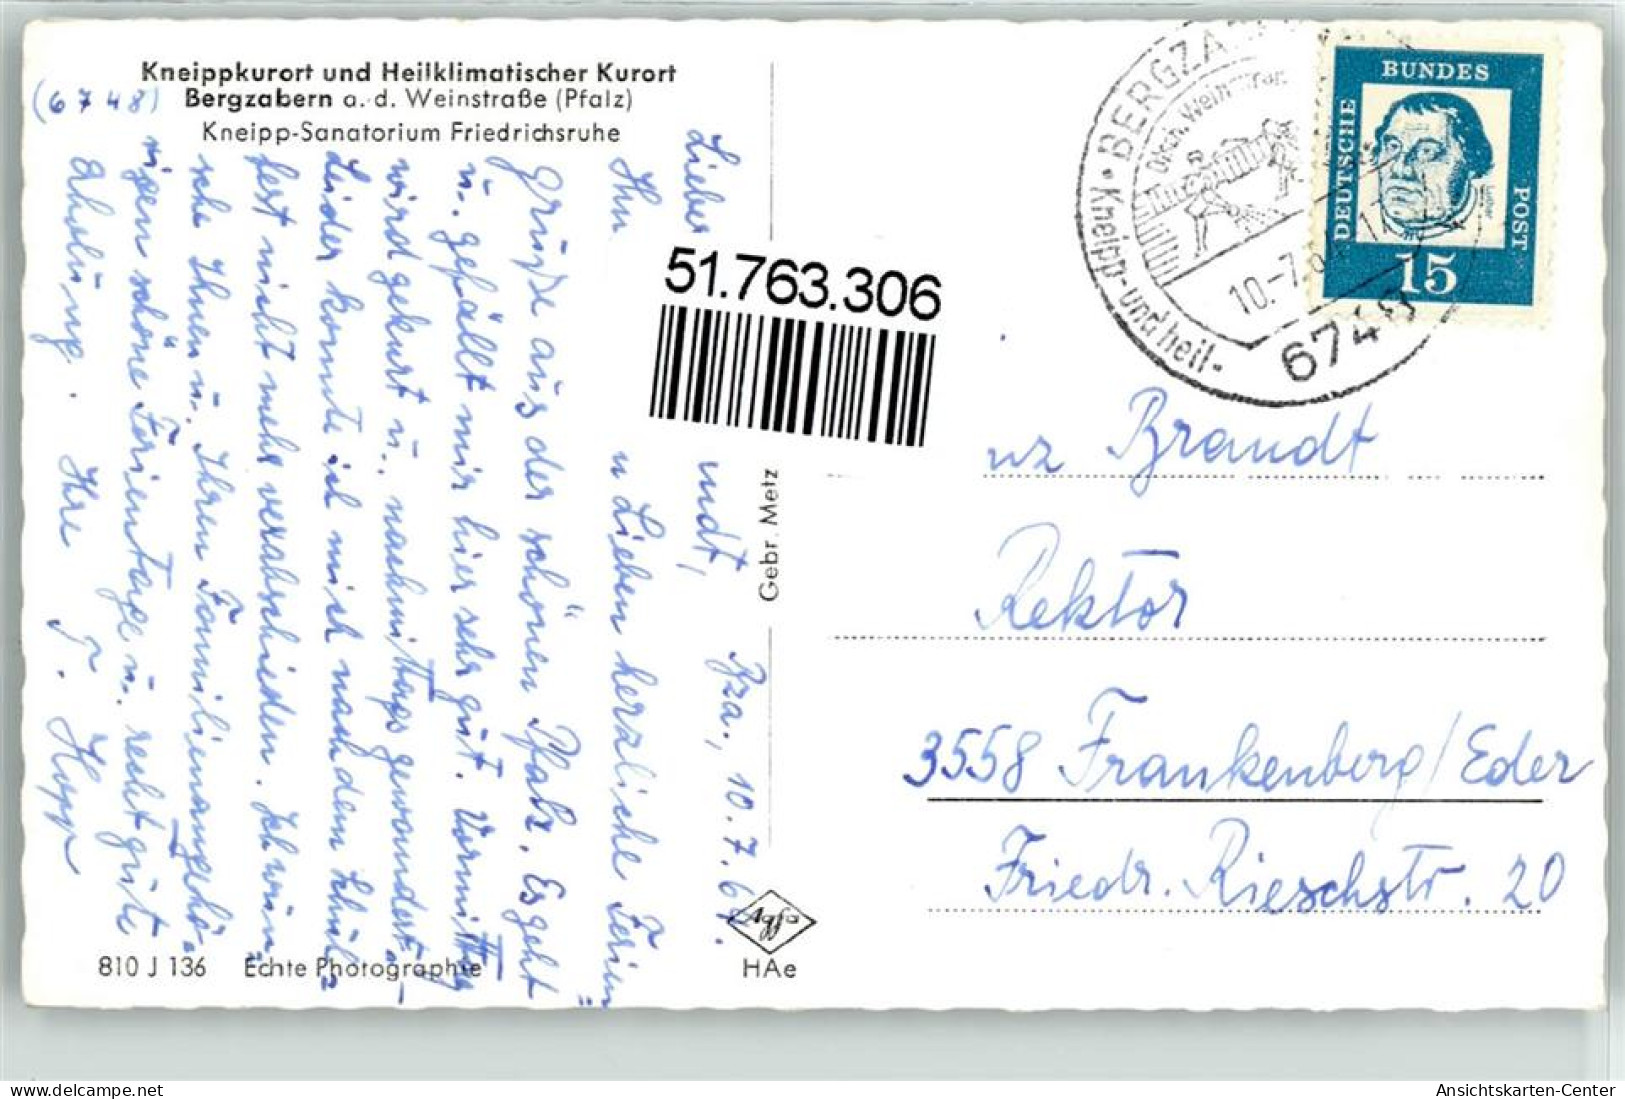 Kneippkurort und Heilklimatischer Kurort
Bergzabern a. d. Weinstraße (Pfalz)
Kneipp-Sanatorium Friedrichsruhe
(6748)
Bza., 10. 7. 64.
Lieber
undt,
Ihn
n Lieben herzliche Ferien=
grüße aus der schönen Pfalz. Es geht
u. gefällt mir hier sehr gut. Vormittags
wird gekurt u. nachmittags gewandert.
Leider konnte ich mich nach dem Schul=
fest nicht mehr verabschieden. Ich wün=
sche Ihnen u. Ihren Familienangehö=
rigen schöne Ferientage u. recht gute
Erholung. Ihre T. Hopp
810 J 136 Echte Photographie
Gebr. Metz
Agfa
HAe
51.763.306
BERGZA
Dtsch. Weinstraß
Kneipp- und heil-
10.-7.6
6748
DEUTSCHE
BUNDES
POST
Luther
15
Brandt
Rektor
3558 Frankenberg/Eder
Friedr. Rieschstr. 20
www.delcampe.net
Ansichtskarten-Center